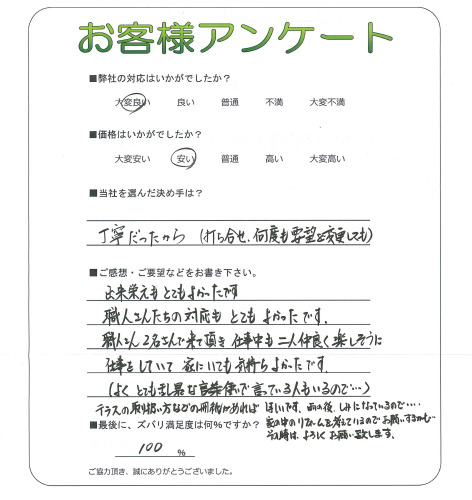 お客様アンケート
■弊社の対応はいかがでしたか?
大変良い 良い 普通 不満 大変不満
■価格はいかがでしたか?
大変安い 安い 普通 高い 大変高い
■当社を選んだ決め手は?
丁寧だったから (打ち合せ、何度も要望を変更しても)
■ご感想・ご要望などをお書き下さい。
出来栄えもとてもよかったです
職人さんたちの対応もとてもよかったです。
職人さん2名さんで来て頂き仕事中も二人仲良く楽しそうに
仕事をしていて家にいても気持ちよかったです。
(よくとても乱暴な言葉使で言っている人もいるので…)
テラスの取扱い方などの冊子があればほしいです。雨の後、しみになっているので…
家の中のリフォームも考えているのでお願いするかも…
■最後に、ズバリ満足度は何%ですか?
その時は、よろしくお願い致します。
100 %
ご協力頂き、誠にありがとうございました。